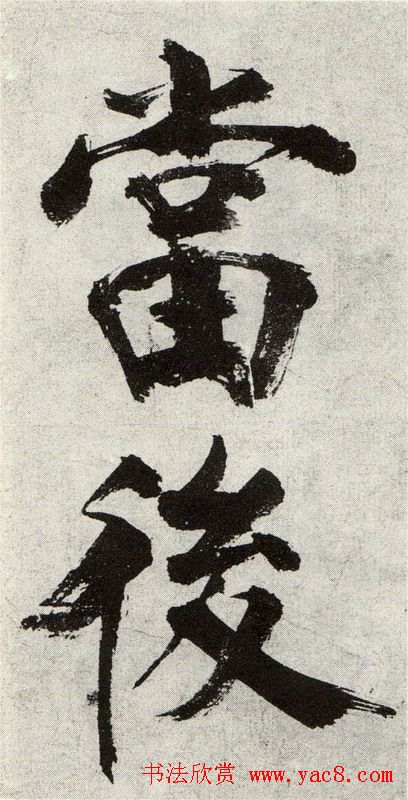 當
後
书法欣赏 www.yac8.com